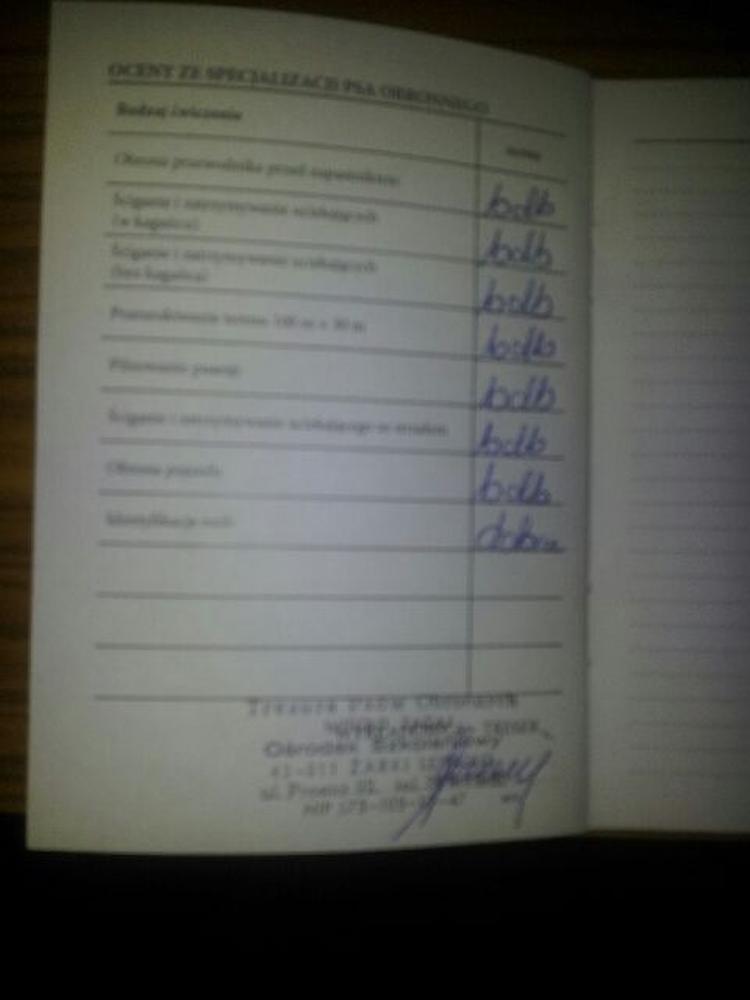 OCENY ZE SPECJALIZACJI PSA OBRONNEGO
Rodzaj ćwiczenia
ocena
Obrona przewodnika przed napastnikiem
bdb
Ściganie i zatrzymywanie uciekających
(w kagańcu)
bdb
Ściganie i zatrzymywanie uciekających
(bez kagańca)
bdb
Przeszukiwanie terenu 100 m x 50 m
bdb
Pilnowanie posesji
bdb
Ściganie i zatrzymywanie uciekającego ze strzałem
bdb
Obrona pojazdu
bdb
Identyfikacja osób
dobra
Tresura Psów Obronnych
Ośrodek Szkoleniowy
ŻARKI
ul.
NIP